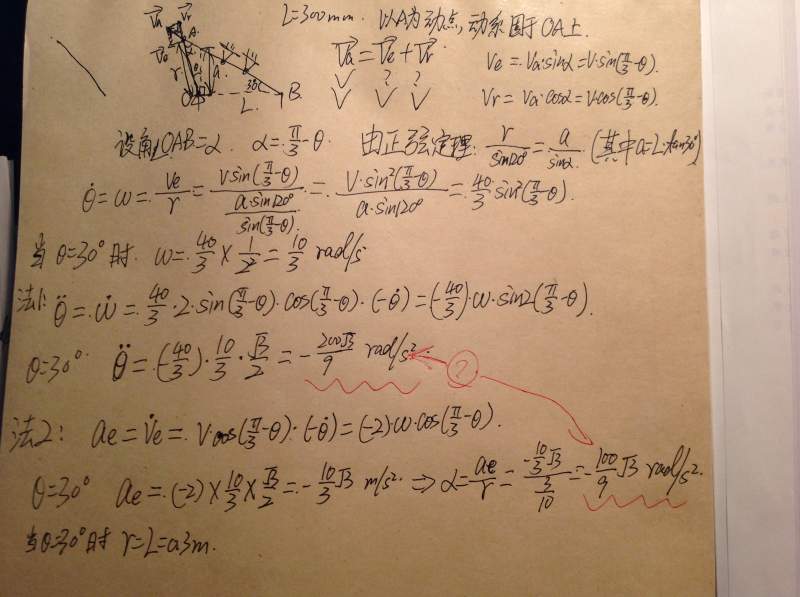 L=300mm. 以A为动点,动系固于OA上.
Va Vr A. Ve r a. 30° O L. B.
Va = Ve + Vr Ve = Va·sinα = V·sin(π/3-θ).
√ ? ?
√ √ √ Vr = Va·cosα = V·cos(π/3-θ).
设角∠OAB=α. α=π/3-θ. 由正弦定理: r/sin120° = a/sinα. (其中a=L·tan30°)
θ̇ = ω = Ve/r = V·sin(π/3-θ)/(a·sin120°/sin(π/3-θ)) = V·sin²(π/3-θ)/(a·sin120°) = 40/3 sin²(π/3-θ).
当θ=30°时. ω = 40/3 × 1/2² = 10/3 rad/s
法1: θ̈ = ω̇ = 40/3·2·sin(π/3-θ)·cos(π/3-θ)·(-θ̇) = (-40/3)·ω·sin2(π/3-θ).
θ=30°. θ̈ = (-40/3)·10/3·√3/2 = -200√3/9 rad/s². ?
法2: ae = V̇e = V·cos(π/3-θ)·(-θ̇) = (-2)·ω·cos(π/3-θ).
θ=30° ae = (-2)×10/3×√3/2 = -10/3√3 m/s² ⇒ α = ae/r = (-10/3√3)/(3/10) = -100/9√3 rad/s².
当θ=30°时 r=L=0.3m.